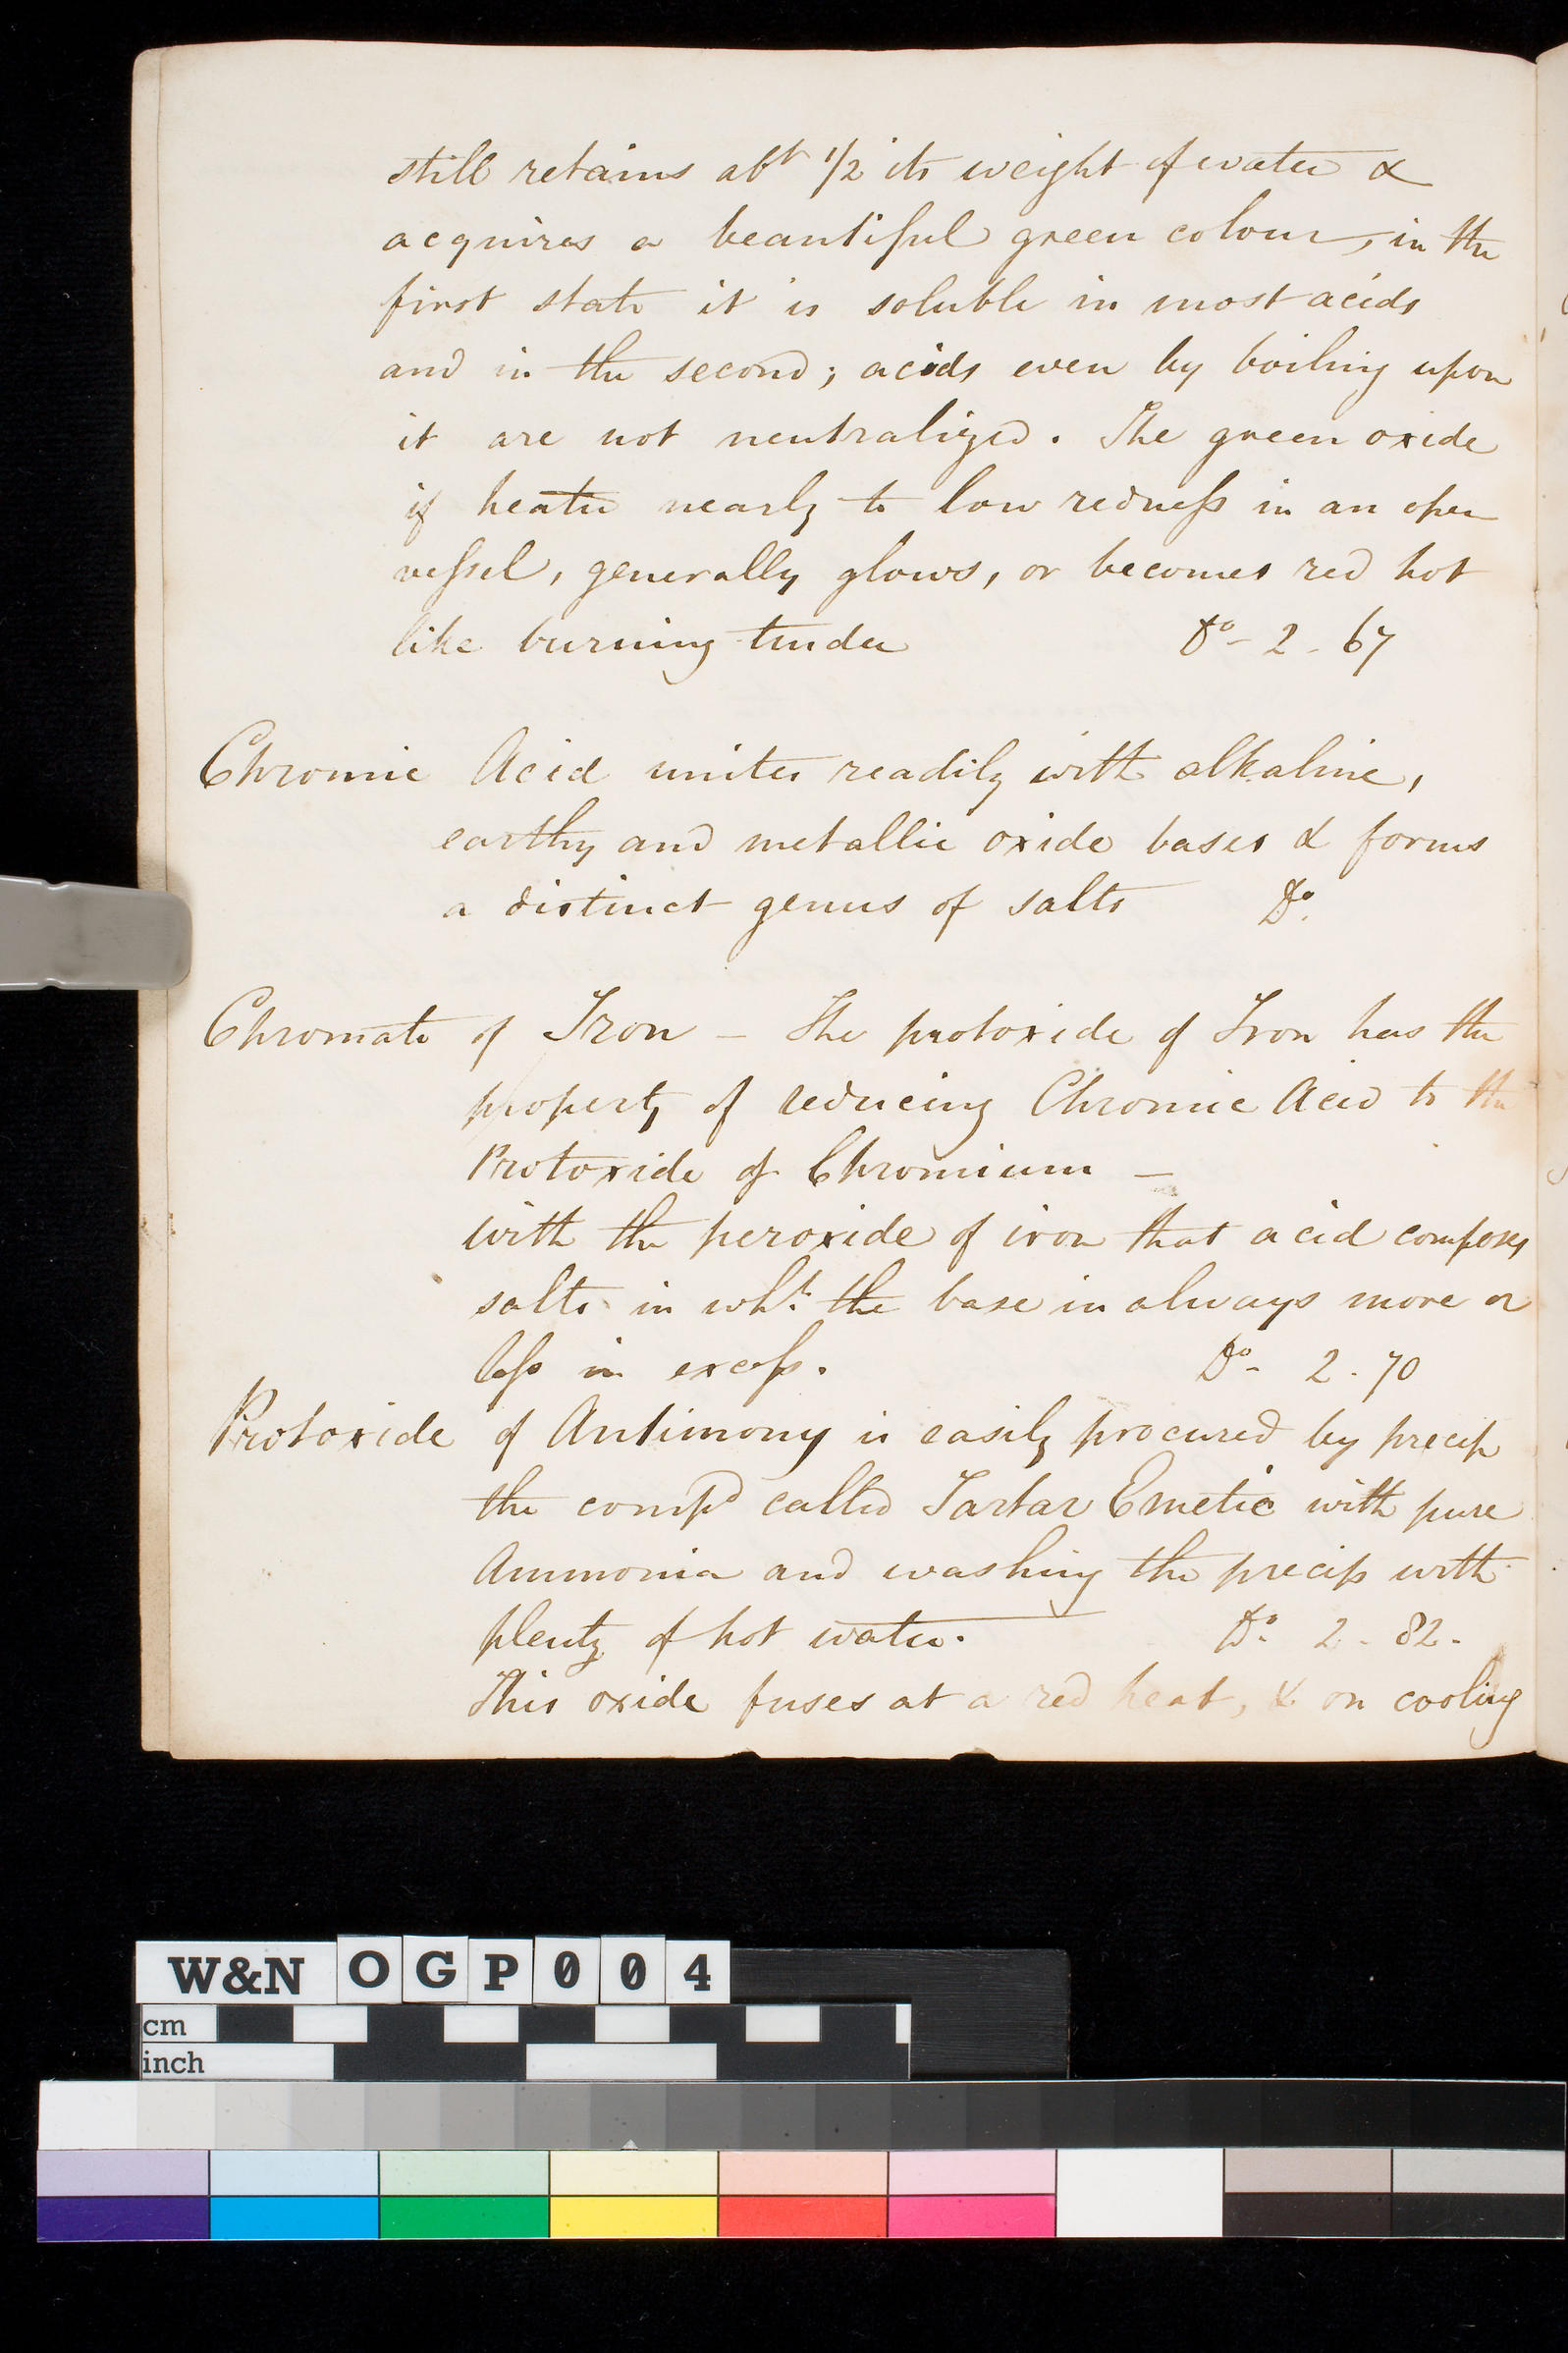 still retains abt 1/2 its weight of water &
acquires a beautiful green colour, in the
first state it is soluble in most acids
and in the second; acids even by boiling upon
it are not neutralized. The green oxide
if heated nearly to low redness in an open
vessel, generally glows, or becomes red hot
like burning tinder Do - 2 - 67
Chromic Acid unites readily with alkaline,
earthy and metallic oxide bases & forms
a distinct genus of salts Do.
Chromate of Iron - The protoxide of Iron has the
property of reducing Chromic Acid to the
Protoxide of Chromium -
with the peroxide of iron that acid composes
salts in wht. the base in always more or
less in excess. Do - 2 . 70
Protoxide of Antimony is easily procured by precip
the compd called Tartar Emetic with pure
Ammonia and washing the precip with
plenty of hot water. Do. 2 - 82.
This oxide fuses at a red heat, & on cooling
W&N OGP004
cm
inch